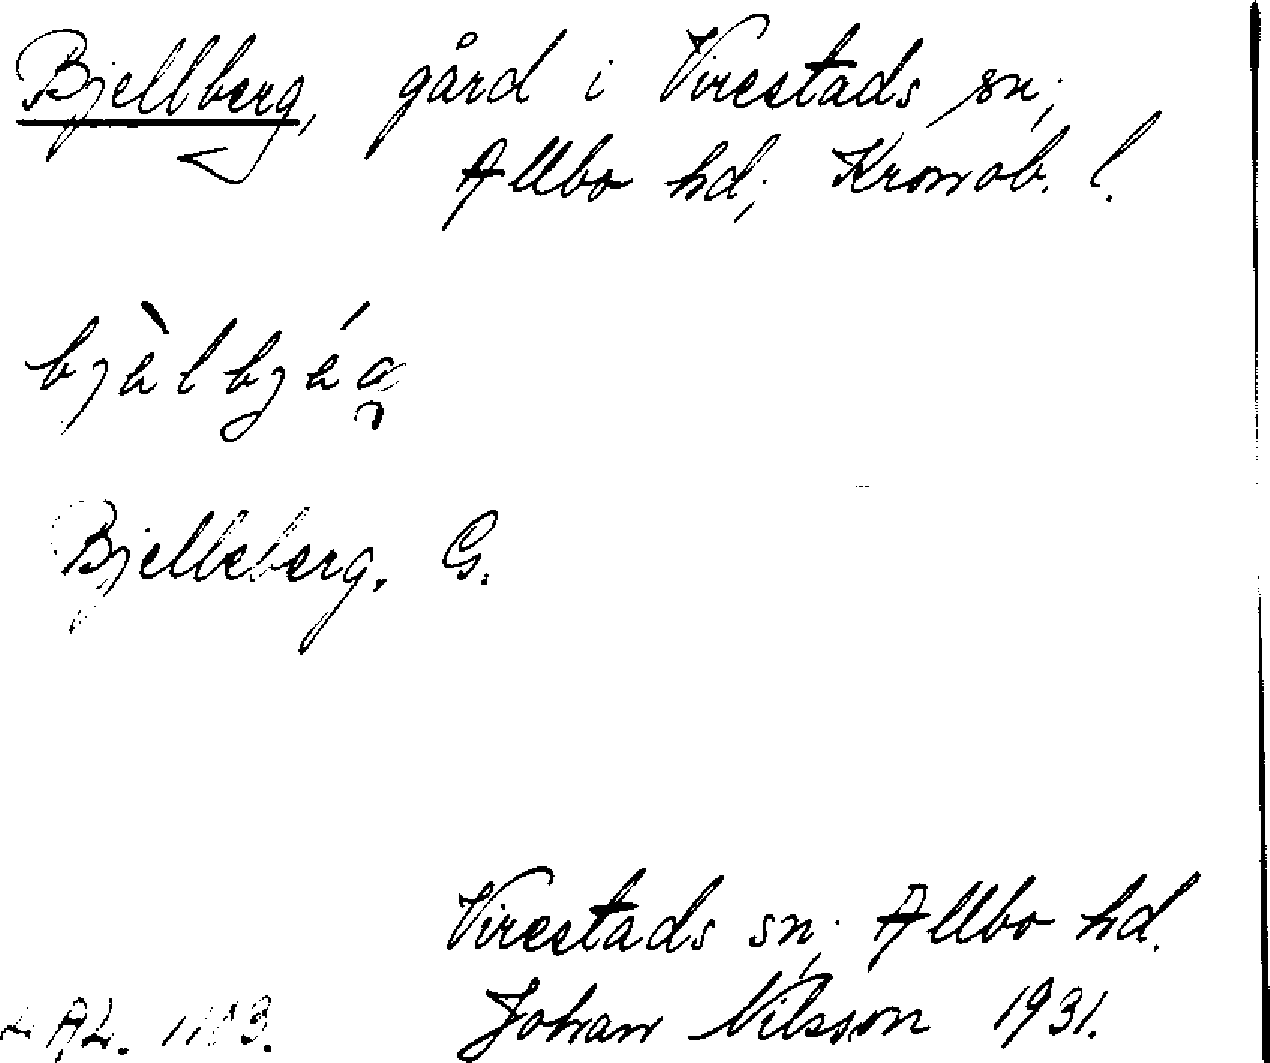 Bjellberg, gård i Virestads sn;
Allbo hd; Kronob. l.
bjàlbjáɑ
Bjelleberg. G.
Virestads sn; Allbo hd.
Johan Nilsson 1931.